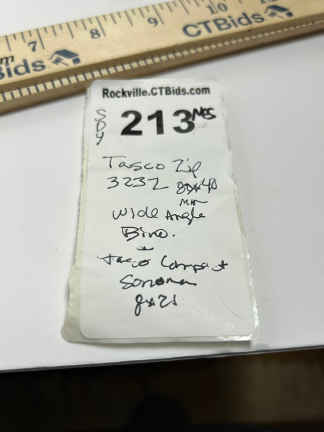 7 8 9
CTBids
Bids
Rockville.CTBids.com
SDY
213 MCS
Tasco Zip
3232 8x40
MM
Wide Angle
Bino.
+
Tasco Compact
Sonoma
8x21